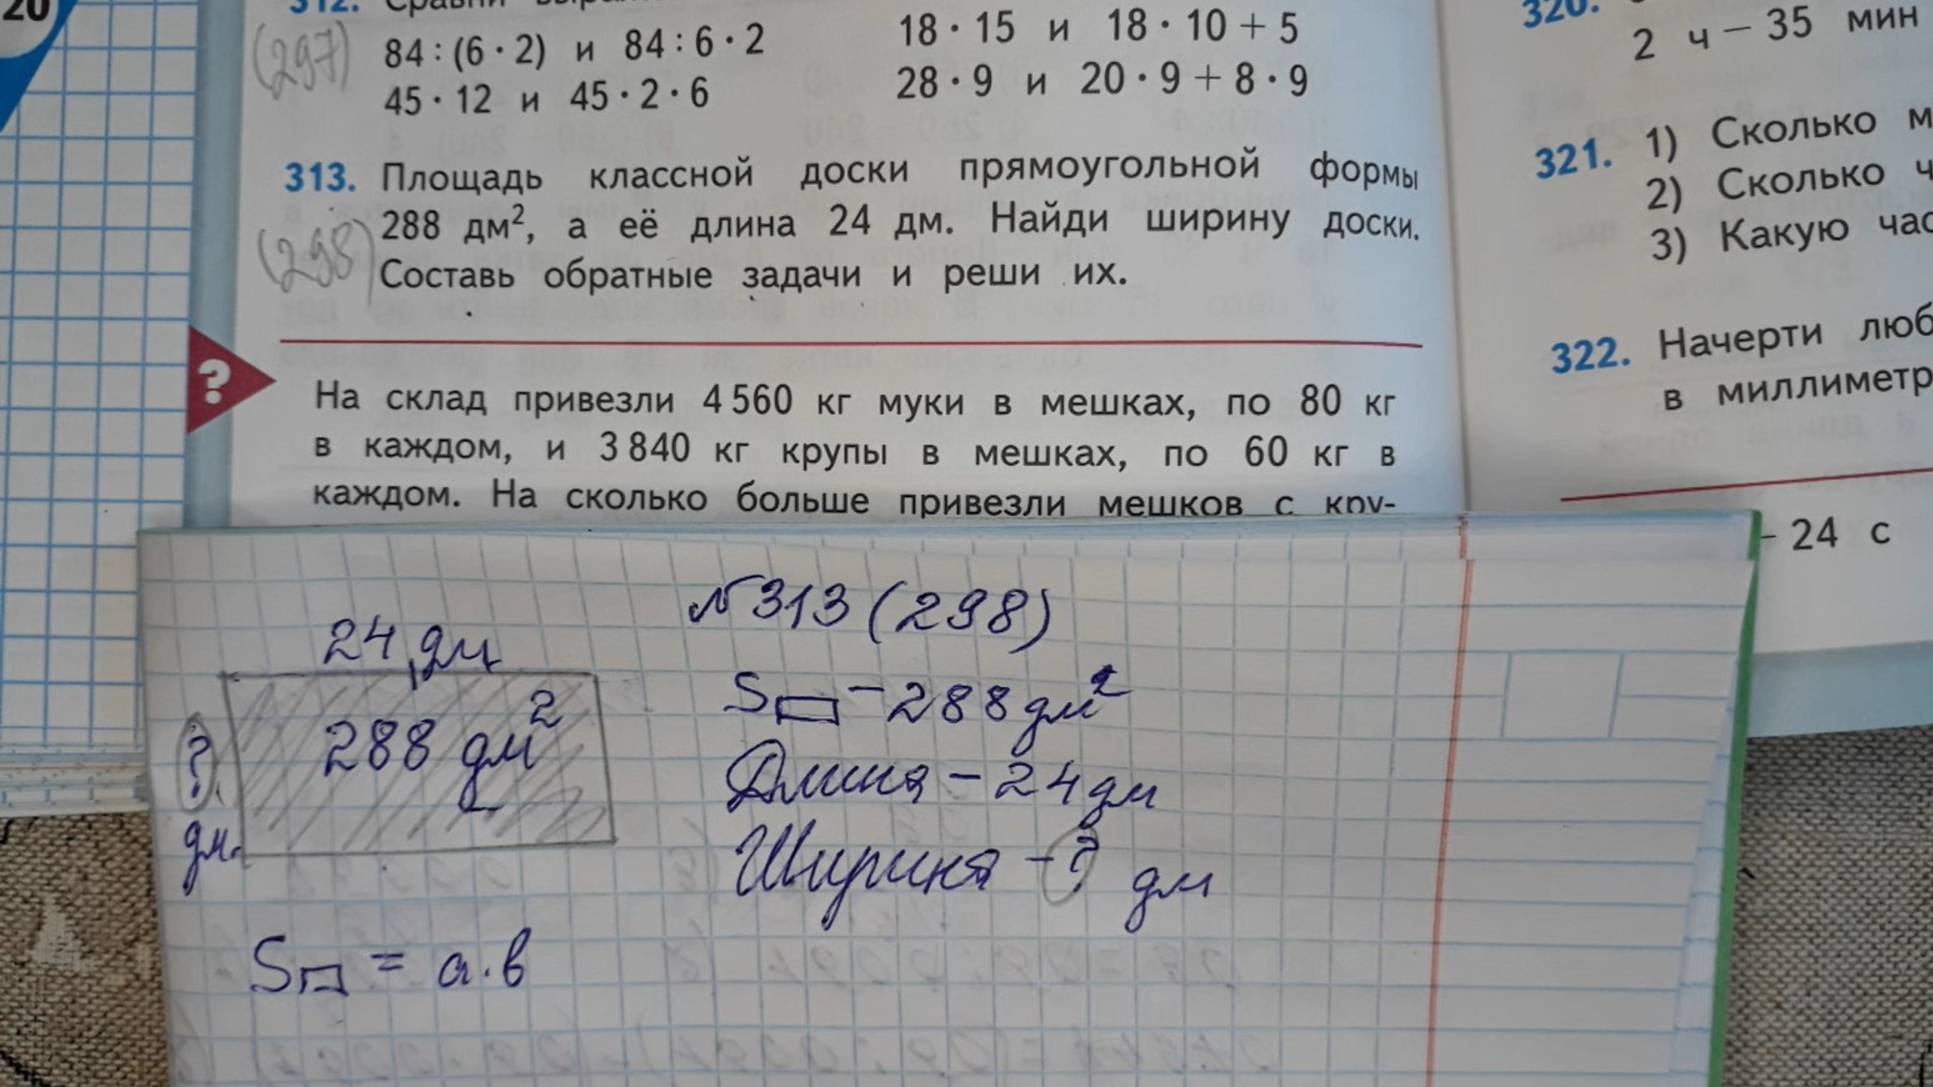 20
312. Сравни
(297)
84 : (6 · 2) и 84 : 6 · 2
18 · 15 и 18 · 10 + 5
45 · 12 и 45 · 2 · 6
28 · 9 и 20 · 9 + 8 · 9
313. Площадь классной доски прямоугольной формы
(298)
288 дм², а её длина 24 дм. Найди ширину доски.
Составь обратные задачи и реши их.
?
На склад привезли 4 560 кг муки в мешках, по 80 кг
в каждом, и 3 840 кг крупы в мешках, по 60 кг в
каждом. На сколько больше привезли мешков с кру-
320.
2 ч – 35 мин
321. 1) Сколько м
2) Сколько ч
3) Какую час
322. Начерти люб
в миллиметр
– 24 с
№313 (298)
24 дм
288 дм²
? дм.
S▭ – 288 дм²
Длина – 24 дм
Ширина – ? дм
S▭ = а·в